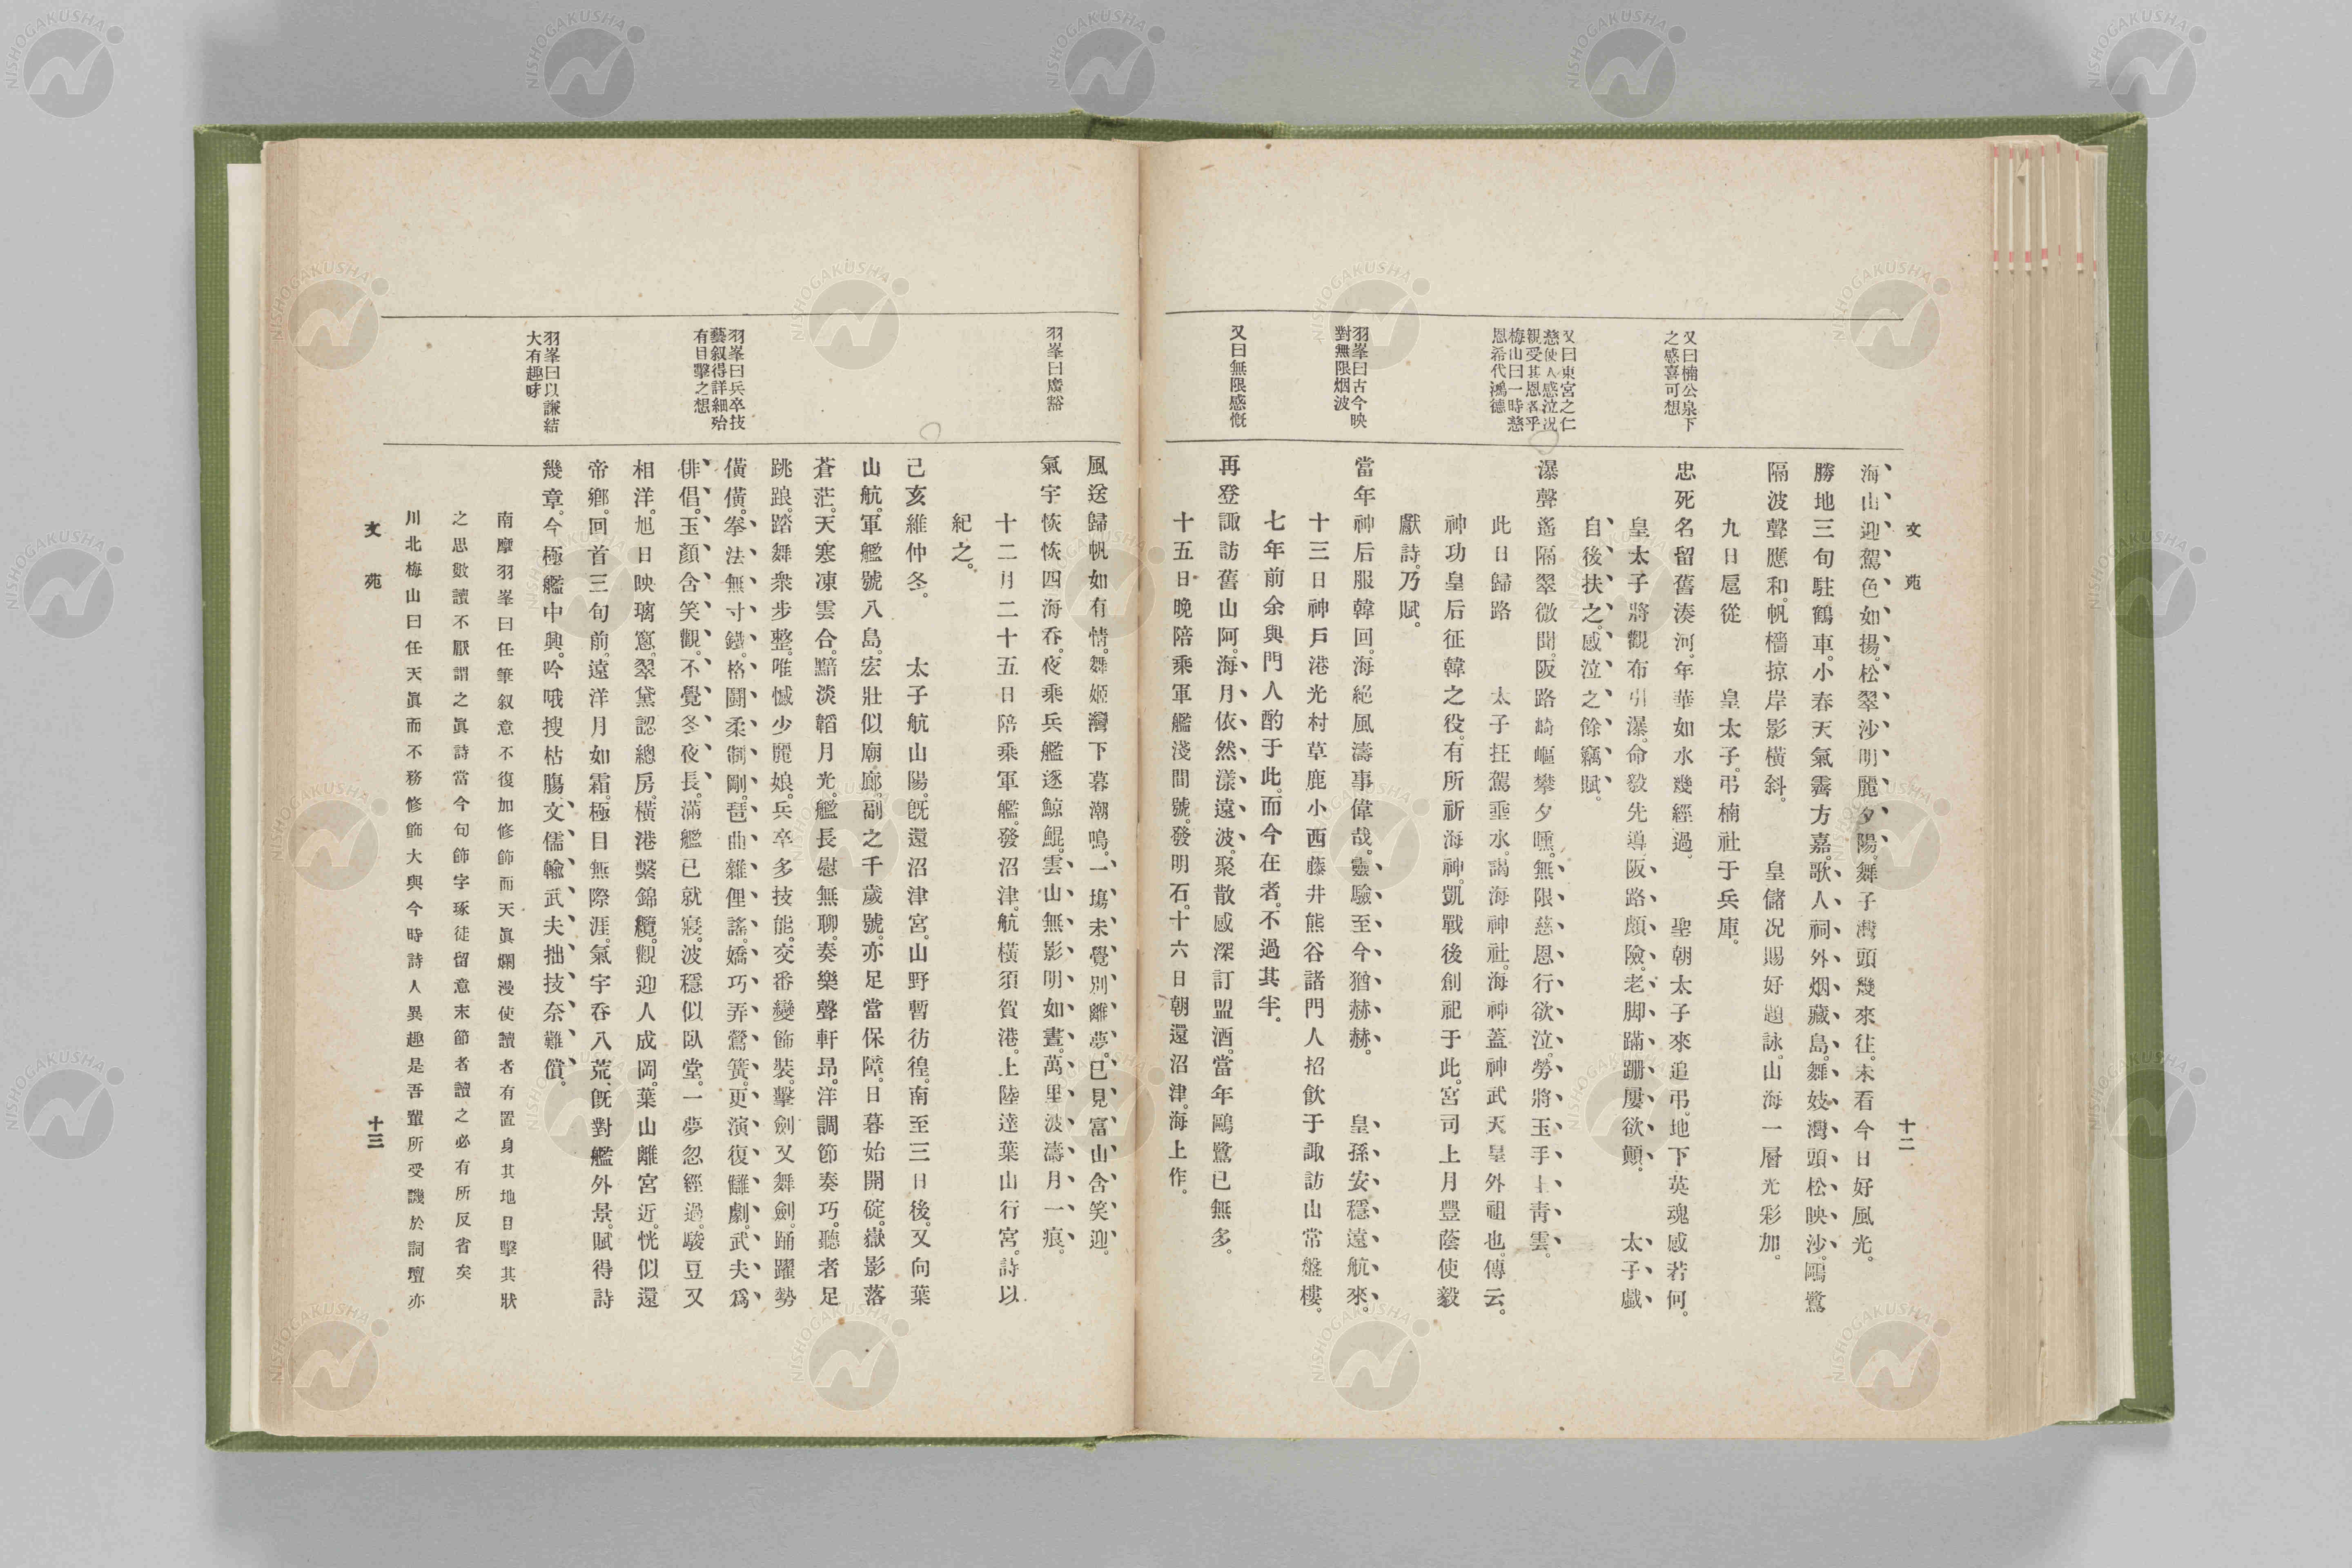 文苑
十二
海山迎駕色如揚。松翠沙明麗夕陽。舞子灣頭幾來往。未看今日好風光。
勝地三旬駐鶴車。小春天氣霽方嘉。歌人祠外烟藏島。舞妓灣頭松映沙。鷗鷺
隔波聲應和。帆檣掠岸影橫斜。　皇儲況賜好題詠。山海一層光彩加。
九日扈從　皇太子。弔楠社于兵庫。
又曰楠公泉下
之感喜可想
忠死名留舊湊河。年華如水幾經過。　聖朝太子來追弔。地下英魂感若何。
皇太子將觀布引瀑。命毅先導阪路頗險。老脚蹣跚屢欲顛。　太子戲
自後扶之。感泣之餘竊賦。
又曰東宮之仁
慈使人感泣況
親受其恩者乎
梅山曰一時慈
恩希代鴻德
瀑聲遙隔翠微聞。阪路崎嶇攀夕曛。無限慈恩行欲泣。勞將玉手上靑雲。
此日歸路　太子枉駕垂水。謁海神社。海神蓋神武天皇外祖也。傳云。
神功皇后征韓之役。有所祈海神。凱戰後創祀于此。宮司上月豐蔭使毅
獻詩。乃賦。
羽峯曰古今映
對無限烟波
當年神后服韓回。海絕風濤事偉哉。靈驗至今猶赫赫。　皇孫安穩遠航來。
十三日神戶港光村草鹿小西藤井熊谷諸門人招飮于諏訪山常盤樓。
七年前余與門人酌于此。而今在者。不過其半。
又曰無限感慨
再登諏訪舊山阿。海月依然漾遠波。聚散感深訂盟酒。當年鷗鷺已無多。
十五日晚陪乘軍艦淺間號。發明石。十六日朝還沼津。海上作。
風送歸帆如有情。舞姬灣下暮潮鳴。一塲未覺別離夢。已見富山含笑迎。
羽峯曰廣豁
氣宇恢恢四海呑。夜乘兵艦逐鯨鯤。雲山無影明如晝。萬里波濤月一痕。
十二月二十五日陪乘軍艦。發沼津。航橫須賀港。上陸達葉山行宮。詩以
紀之。
己亥維仲冬。　太子航山陽。旣還沼津宮。山野暫彷徨。南至三日後。又向葉
山航。軍艦號八島。宏壯似廟廊。副之千歲號。亦足當保障。日暮始開碇。嶽影落
蒼茫。天寒凍雲合。黯淡韜月光。艦長慰無聊。奏樂聲軒昂。洋調節奏巧。聽者足
跳踉。踏舞衆步整。唯憾少麗娘。兵卒多技能。交番變飾裝。擊劍又舞劍。踊躍勢
羽峯曰兵卒技
藝叙得詳細殆
有目擊之想
僙僙。拳法無寸鐵。格鬪柔制剛。琶曲雜俚謠。嬌巧弄鶯簧。更演復讎劇。武夫爲
俳倡。玉顏含笑觀。不覺冬夜長。滿艦已就寢。波穩似臥堂。一夢忽經過。駿豆又
相洋。旭日映璃窻。翠黛認總房。橫港繫錦纜。觀迎人成岡。葉山離宮近。恍似還
帝鄕。回首三旬前。遠洋月如霜。極目無際涯。氣宇呑八荒。旣對艦外景。賦得詩
羽峯曰以謙結
大有趣味
幾章。今極艦中興。吟哦搜枯膓。文儒輸武夫。拙技奈難償。
南摩羽峯曰任筆叙意不復加修飾而天眞爛漫使讀者有置身其地目擊其狀
之思數讀不厭謂之眞詩當今句飾字琢徒留意末節者讀之必有所反省矣
川北梅山曰任天眞而不務修飾大與今時詩人異趣是吾輩所受譏於詞壇亦
文苑
十三